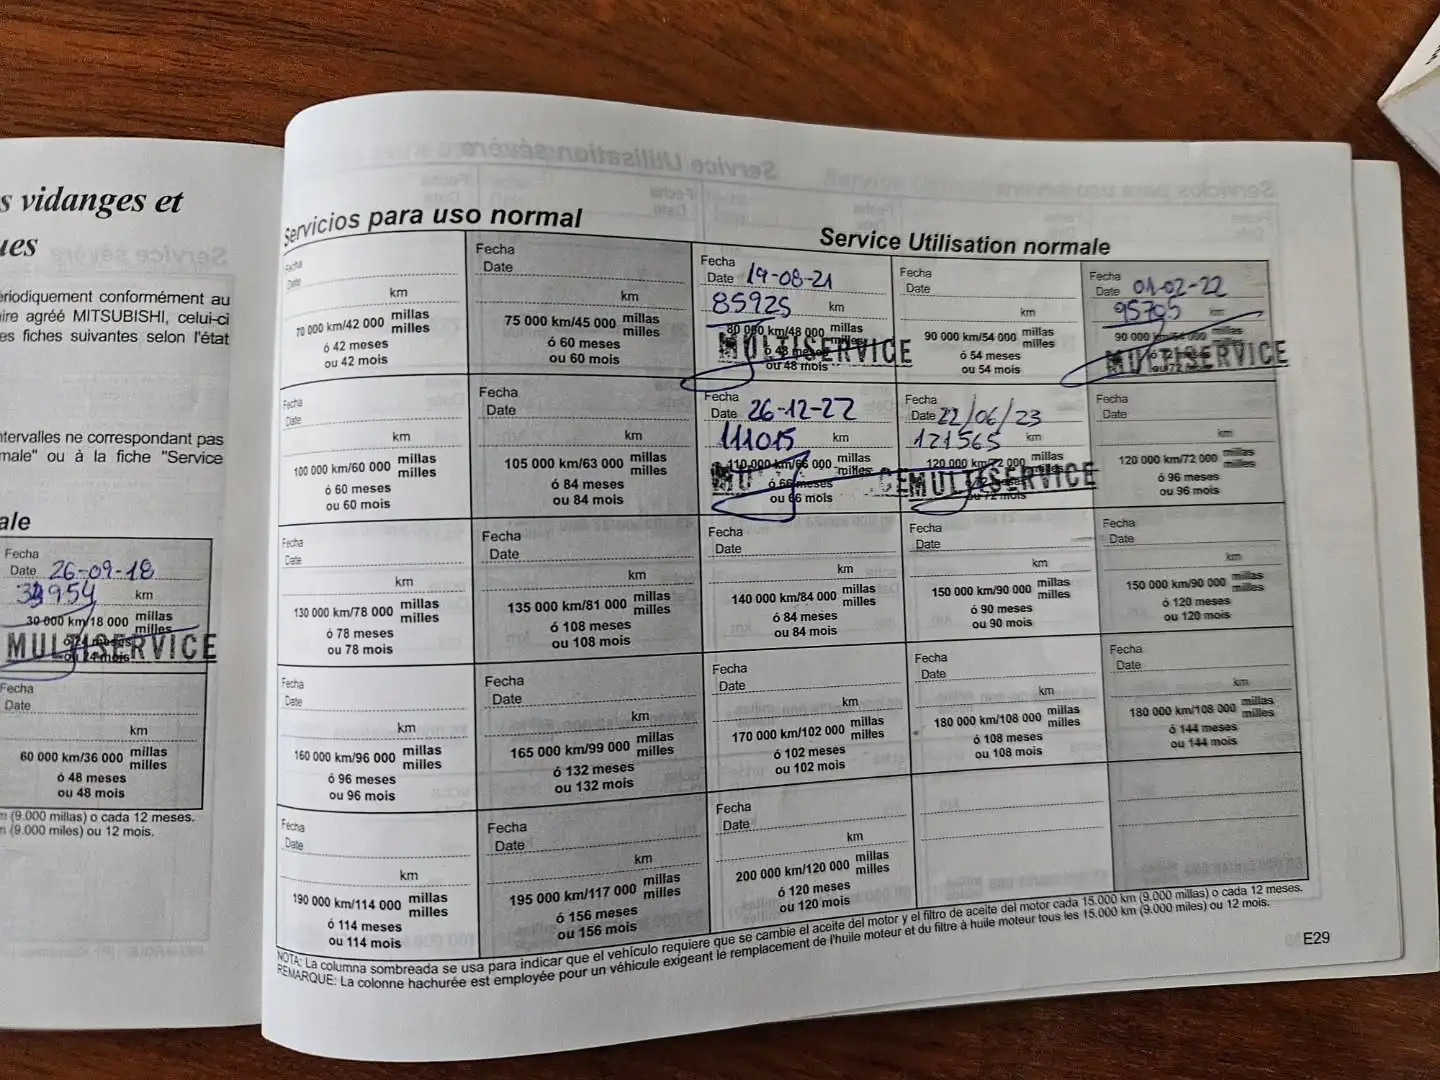 s vidanges et
ues
ériodiquement conformément au
ire agréé MITSUBISHI, celui-ci
es fiches suivantes selon l'état
ntervalles ne correspondant pas
male" ou à la fiche "Service
ale
Fecha
Date 26-09-18
954 km
30 000 km/18 000 millas
milles
MULTISERVICE
Fecha
Date
km
60 000 km/36 000 millas
milles
ó 48 meses
ou 48 mois
(9.000 millas) o cada 12 meses.
(9.000 miles) ou 12 mois.
Servicios para uso normal
Service Utilisation normale
Fecha
Date
km
70 000 km/42 000 millas
milles
ó 42 meses
ou 42 mois
Fecha
Date
km
75 000 km/45 000 millas
milles
ó 60 meses
ou 60 mois
Fecha
Date 19-08-21
85925 km
80 000 km/48 000 millas
milles
ó 48 meses
MULTISERVICE
ou 48 mois
Fecha
Date
km
90 000 km/54 000 millas
milles
ó 54 meses
ou 54 mois
Fecha
Date 01-02-22
95705 km
90 000 km/54 000 millas
milles
MULTISERVICE
ou 72 mois
Fecha
Date
km
100 000 km/60 000 millas
milles
ó 60 meses
ou 60 mois
Fecha
Date
km
105 000 km/63 000 millas
milles
ó 84 meses
ou 84 mois
Fecha
Date 26-12-22
111015 km
110 000 km/66 000 millas
milles
ó 66 meses
ou 66 mois
Fecha
Date 22/06/23
121565 km
120 000 km/72 000 millas
milles
MULTISERVICE
ou 72 mois
Fecha
Date
km
120 000 km/72 000 millas
milles
ó 96 meses
ou 96 mois
Fecha
Date
km
130 000 km/78 000 millas
milles
ó 78 meses
ou 78 mois
Fecha
Date
km
135 000 km/81 000 millas
milles
ó 108 meses
ou 108 mois
Fecha
Date
km
140 000 km/84 000 millas
milles
ó 84 meses
ou 84 mois
Fecha
Date
km
150 000 km/90 000 millas
milles
ó 90 meses
ou 90 mois
Fecha
Date
km
150 000 km/90 000 millas
milles
ó 120 meses
ou 120 mois
Fecha
Date
km
160 000 km/96 000 millas
milles
ó 96 meses
ou 96 mois
Fecha
Date
km
165 000 km/99 000 millas
milles
ó 132 meses
ou 132 mois
Fecha
Date
km
170 000 km/102 000 millas
milles
ó 102 meses
ou 102 mois
Fecha
Date
km
180 000 km/108 000 millas
milles
ó 108 meses
ou 108 mois
Fecha
Date
km
180 000 km/108 000 millas
milles
ó 144 meses
ou 144 mois
Fecha
Date
km
190 000 km/114 000 millas
milles
ó 114 meses
ou 114 mois
Fecha
Date
km
195 000 km/117 000 millas
milles
ó 156 meses
ou 156 mois
Fecha
Date
km
200 000 km/120 000 millas
milles
ó 120 meses
ou 120 mois
NOTA: La columna sombreada se usa para indicar que el vehículo requiere que se cambie el aceite del motor y el filtro de aceite del motor cada 15.000 km (9.000 millas) o cada 12 meses.
REMARQUE: La colonne hachurée est employée pour un véhicule exigeant le remplacement de l'huile moteur et du filtre à huile moteur tous les 15.000 km (9.000 miles) ou 12 mois.
E29